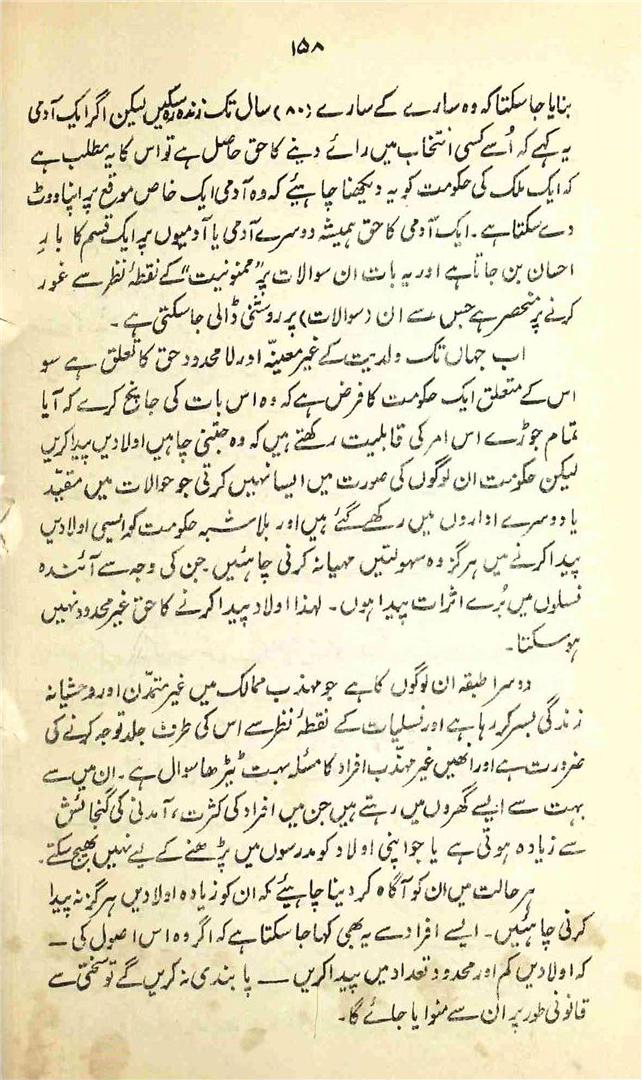 ۱۵۸
بنایا جا سکتا کہ وہ سارے کے سارے (۸۰) سال تک زندہ رہ سکیں لیکن اگر ایک آدمی
یہ کہے کہ اُسے کسی انتخاب میں رائے دینے کا حق حاصل ہے تو اس کا یہ مطلب ہے
کہ ایک ملک کی حکومت کو یہ دیکھنا چاہیئے کہ وہ آدمی ایک خاص موقع پر اپنا ووٹ
دے سکتا ہے۔ ایک آدمی کا حق ہمیشہ دوسرے آدمی یا آدمیوں پر ایک قسم کا بارِ
احسان بن جاتا ہے اور یہ بات ان سوالات پر "ممنونیت" کے نقطۂ نظر سے غور
کرنے پر منحصر ہے جس سے ان (سوالات) پر روشنی ڈالی جا سکتی ہے۔
اب جہاں تک ولدیت کے غیر معینہ اور لا محدود حق کا تعلق ہے سو
اس کے متعلق ایک حکومت کا فرض ہے کہ وہ اس بات کی جانچ کرے کہ آیا
تمام جوڑے اس امر کی قابلیت رکھتے ہیں کہ وہ جتنی چاہیں اولادیں پیدا کریں
لیکن حکومت ان لوگوں کی صورت میں ایسا نہیں کرتی جو حوالات میں مقیّد
یا دوسرے اداروں میں رکھے گئے ہیں اور بلا شبہ حکومت کو ایسی اولادیں
پیدا کرنے میں ہرگز وہ سہولتیں مہیا نہ کرنی چاہئیں جن کی وجہ سے آئندہ
نسلوں میں بُرے اثرات پیدا ہوں۔ لہذا اولاد پیدا کرنے کا حق غیر محدود نہیں
ہو سکتا۔
دوسرا طبقہ ان لوگوں کا ہے جو مہذب ممالک میں غیر متمدّن اور وحشیانہ
زندگی بسر کر رہا ہے اور نسلیات کے نقطۂ نظر سے اس کی طرف جلد توجہ کرنے کی
ضرورت ہے اور انھیں غیر مہذّب افراد کا مسئلہ بہت ٹیڑھا سوال ہے۔ ان میں سے
بہت سے ایسے گھروں میں رہتے ہیں جن میں افراد کی کثرت، آمدنی کی گنجائش
سے زیادہ ہوتی ہے یا جو اپنی اولاد کو مدرسوں میں پڑھنے کے لیے نہیں بھیج سکتے۔
ہر حالت میں ان کو آگاہ کر دینا چاہیئے کہ ان کو زیادہ اولادیں ہرگز نہ پیدا
کرنی چاہئیں۔ ایسے افراد سے یہ بھی کہا جا سکتا ہے کہ اگر وہ اس اصول کی —
کہ اولادیں کم اور محدود تعداد میں پیدا کریں — پابندی نہ کریں گے تو سختی سے
قانونی طور پر ان سے منوایا جائے گا۔